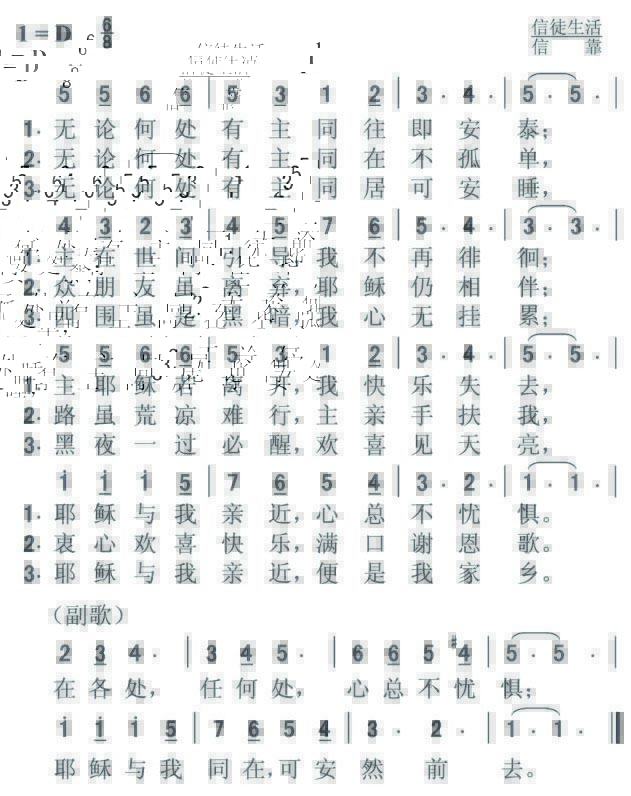 1 = D 6/8
信徒生活
信 靠
5 5 6 6 | 5 3 1 2 | 3 · 4 · | 5 · 5 · |
1. 无论何处有主同往即安泰;
2. 无论何处有主同在不孤单,
3. 无论何处有主同居可安睡,
4 3 2 3 | 4 5 7 6 | 5 · 4 · | 3 · 3 · |
1. 主在世间引导,我不再徘徊;
2. 众朋友虽离弃,耶稣仍相伴;
3. 四围虽是黑暗,我心无挂累;
5 5 6 6 | 5 3 1 2 | 3 · 4 · | 5 · 5 · |
1. 主耶稣若离弃,我快乐失去,
2. 路虽荒凉难行,主亲手扶我,
3. 黑夜一过必醒,欢喜见天亮,
i i i 5 | 7 6 5 4 | 3 · 2 · | 1 · 1 · |
1. 耶稣与我亲近,心总不忧惧。
2. 衷心欢喜快乐,满口谢恩歌。
3. 耶稣与我亲近,便是我家乡。
(副歌)
2 3 4 · | 3 4 5 · | 6 6 5 #4 | 5 · 5 · |
在各处, 任何处, 心总不忧惧;
i i i 5 | 7 6 5 4 | 3 · 2 · | 1 · 1 · ||
耶稣与我同在,可安然前去。